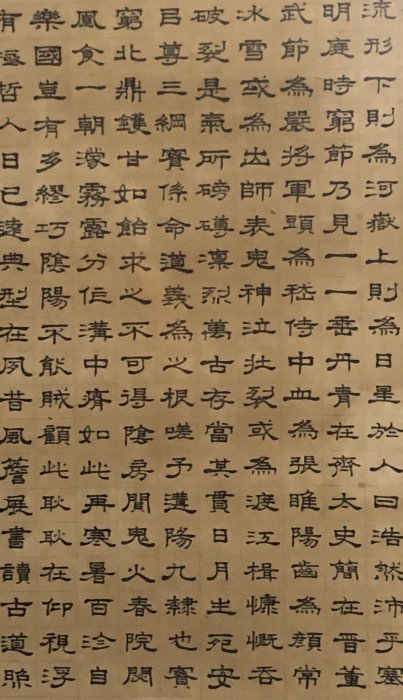 流形下則為河嶽上則為日星於人曰浩然沛乎塞
明庭時窮節乃見一一垂丹青在齊太史簡在晉董
武節為嚴將軍頭為嵇侍中血為張睢陽齒為顏常
冰雪或為出師表鬼神泣壯裂或為渡江楫慷慨吞
破裂是氣所磅礴凜烈萬古存當其貫日月生死安
㠯尊三綱實係命道義為之根嗟予遘陽九隸也實
窮北鼎鑊甘如飴求之不可得陰房閴鬼火春院閟
鳳食一朝濛霧露分作溝中瘠如此再寒暑百沴自
樂國豈有多繆巧陰陽不能賊顧此耿耿在仰視浮
有極哲人日已遠典型在夙昔風簷展書讀古道照